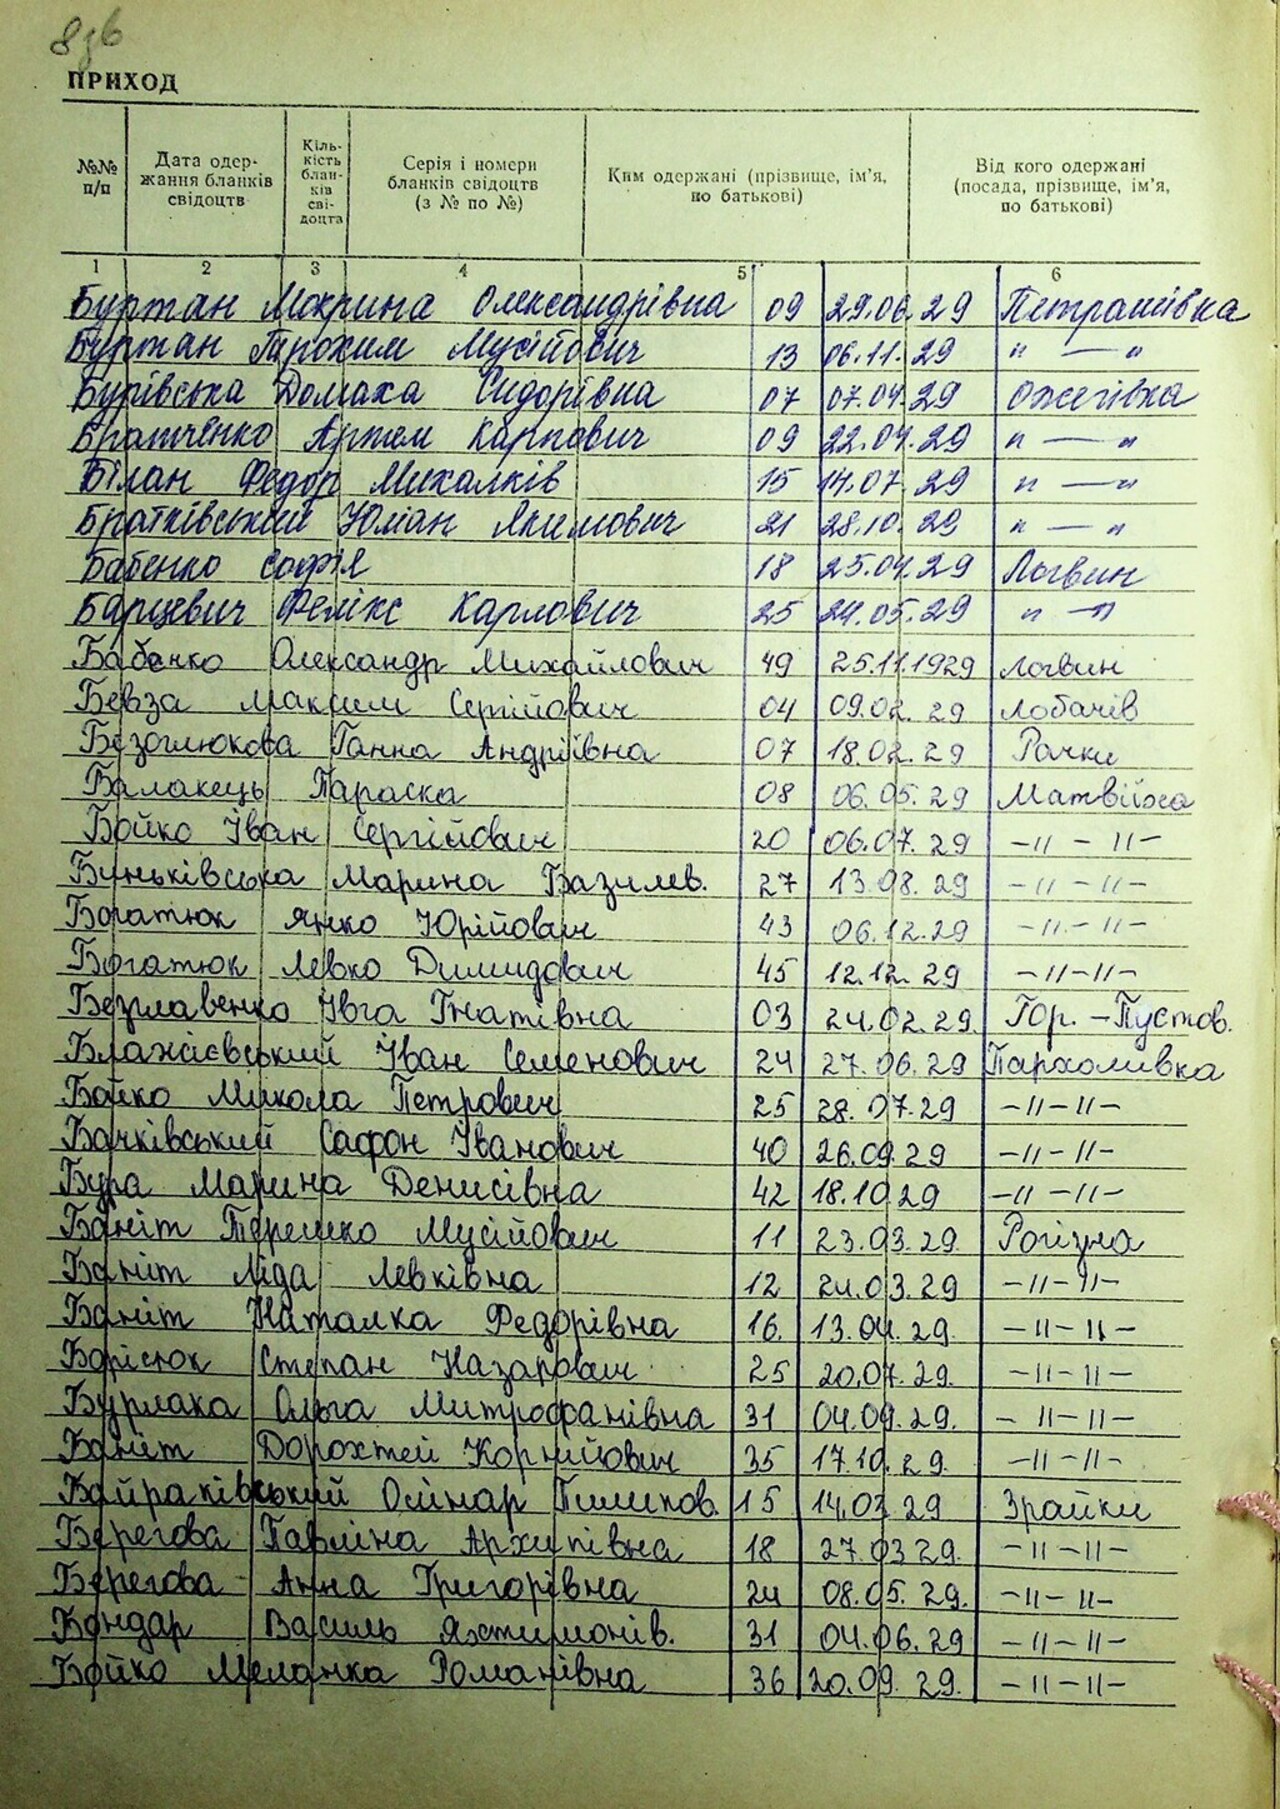 8зв
ПРИХОД
№№ п/п
Дата одер-
жання бланків
свідоцтв
Кіль-
кість
блан-
ків
сві-
доцтв
Серія і номери
бланків свідоцтв
(з № по №)
Ким одержані (прізвище, ім'я,
по батькові)
Від кого одержані
(посада, прізвище, ім'я,
по батькові)
1 2 3 4 5 6
Буртан Мокрина Олександрівна 09 29.06.29 Петрашівка
Буртан Трохим Мусійович 13 06.11.29 " — "
Бурівська Домаха Сидорівна 07 07.04.29 Ожегівка
Братченко Артем Карпович 09 22.04.29 " — "
Білан Федор Михалків 15 14.07.29 " — "
Братківський Юліан Якимович 21 28.10.29 " — "
Бабенко Софія 18 25.04.29 Логвин
Барцевич Фелікс Карлович 25 24.05.29 " — "
Бабенко Олександр Михайлович 49 25.11.1929 Логвин
Бевза Максим Сергійович 04 09.02.29 Лобачів
Безоглюкова Ганна Андріївна 07 18.02.29 Рачки
Балакець Параска 08 06.05.29 Матвіїха
Бойко Іван Сергійович 20 06.07.29 –"–"–
Биньківська Марина Базилев. 27 13.08.29 –"–"–
Богатюк Янко Юрійович 43 06.12.29 –"–"–
Богатюк Левко Димидович 45 12.12.29 –"–"–
Безглавенко Івга Гнатівна 03 24.02.29. Гор.–Пустов.
Блажиєвський Іван Семенович 24 27.06.29 Пархомивка
Бойко Микола Петрович 25 28.07.29 –"–"–
Бочківський Сафон Іванович 40 26.09.29 –"–"–
Бура Марина Денисівна 42 18.10.29 –"–"–
Баніт Терешко Мусійович 11 23.03.29. Рогізна
Баніт Ліда Левківна 12 24.03.29 –"–"–
Баніт Наталка Федорівна 16. 13.04.29. –"–"–
Борісюк Степан Назарович 25 20.07.29. –"–"–
Бурлака Ольга Митрофанівна 31 04.09.29. –"–"–
Баніт Дорохтей Корнійович 35 17.10.29. –"–"–
Байраківський Олінар Пилипов. 15 14.03.29 Зрайки
Берегова Павліна Архипівна 18 27.03.29. –"–"–
Берегова Анна Григорівна 24 08.05.29. –"–"–
Бондар Василь Яхтимонів. 31 04.06.29 –"–"–
Бойко Меланка Романівна 36 20.09.29. –"–"–